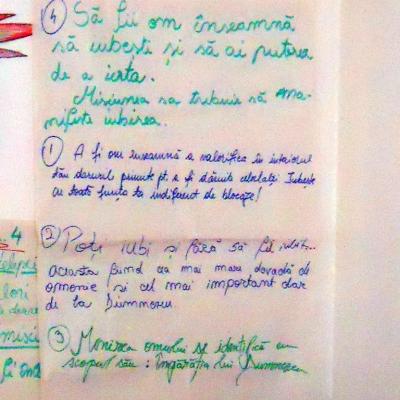 4) Să fii om înseamnă
să iubești și să ai puterea
de a ierta.
Misiunea sa trebuie să ma-
nifeste iubirea.
1) A fi om înseamnă a valorifica în interiorul
tău darurile primite pt. a fi dăruite celorlalți. Iubește
cu toată ființa ta indiferent de blocaje!
2) Poți iubi și fără să fii iubit...
aceasta fiind cea mai mare dovadă de
omenie și cel mai important dar
de la Dumnezeu.
3) Menirea omului se identifică cu
scopul său: Împărăția lui Dumnezeu
4